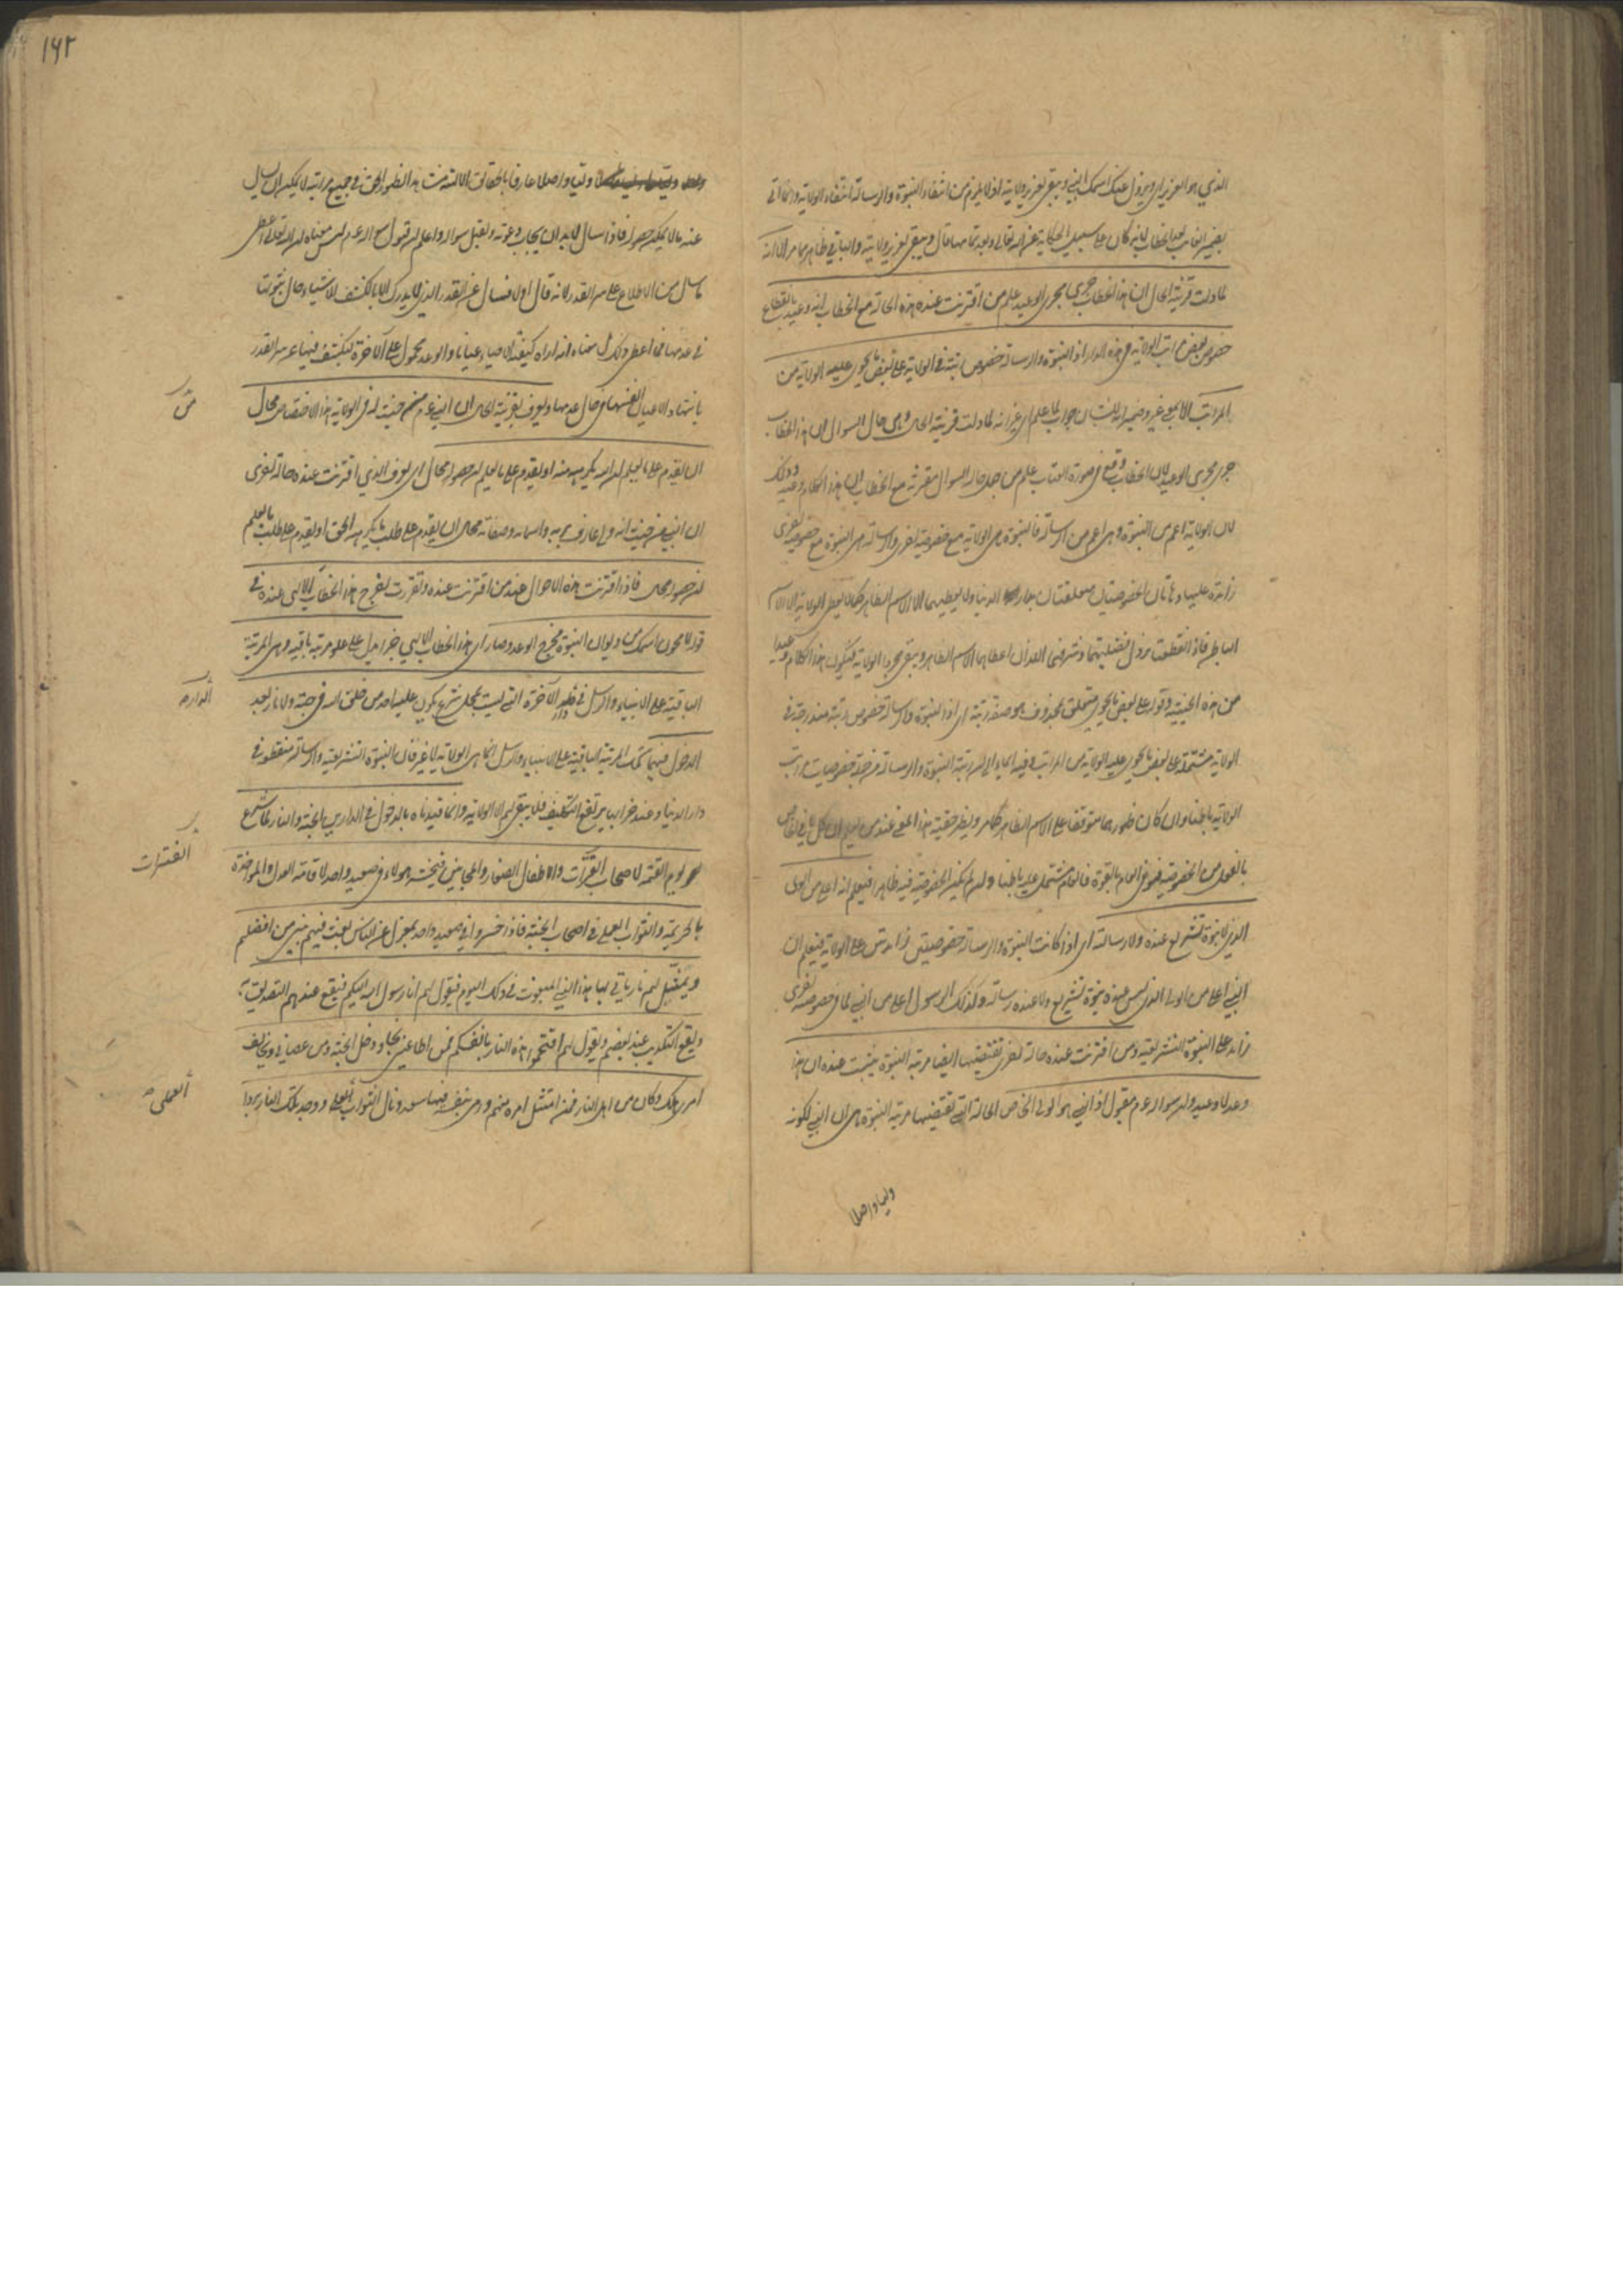 الذي هو العزيز اي ويزول عنك اسمك النبي ويبقى لعزير ولايته اذ لا يلزم من انتفاء النبوة والرسالة انتفاء الولاية وانما اتى
بضمير الغائب بعد الخطاب لانه كان على سبيل الحكاية عن الله تعالى وبعد تمامها قال ويبقى لعزير ولايته والباقي ظاهر مما مر الا انه
لما دلت قرينة الحال ان هذا الخطاب جرى مجرى الوعيد علم من اقترنت عنده هذه الحالة مع الخطاب انه وعيد بانقطاع
خصوص بعض مراتب الولاية في هذه الدار اذ النبوة والرسالة خصوص رتبة في الولاية على بعض ما تحوي عليه الولاية من
المراتب الا بمعنى غير وضمير انه للشان جواب لما علم اي غير انه لما دلت قرينة الحال وهي حال السوال ان هذا الخطاب
جرى مجرى الوعيد لان الخطاب وقع في صورة العتاب علم من جعل حالة السوال مقترنة مع الخطاب ان هذا الكلام وعيد وذلك
لان الولاية اعم من النبوة وهي اعم من الرسالة فالنبوة هي الولاية مع خصوصية اخرى والرسالة هي النبوة مع خصوصية اخرى
زائدة عليها وهاتان الخصوصيتان متعلقتان بدار الدنيا ولا يعطيهما الا الاسم الظاهر كما لا يعطي الولاية الا الاسم
الباطن فاذا انقطعت يزول فضيلتهما وشرفهما اللذان اعطاهما الاسم الظاهر ويبقى مجرد الولاية فيكون هذا الكلام وعيدا
من هذه الحيثية وقوله على بعض ما تحوي متعلق بمحذوف هو صفة رتبة اي اذ النبوة والرسالة خصوص رتبة مندرجة في
الولاية مشتملة على بعض ما تحوي عليه الولاية من المراتب وفيه ايماء الى ان رتبة النبوة والرسالة من جملة خصوصيات مراتب
الولاية باطنا وان كان ظهورهما متوقفا على الاسم الظاهر كما مر ويظهر حقيقة هذا المعنى عند من يعلم ان كل ما في الخاص
بالفعل من الخصوصية فهو في العام بالقوة فالعام مشتمل عليه باطنا وان لم يكن الخصوصية فيه ظاهرا فيعلم انه اعلى من الولي
الذي لا نبوة تشريع عنده ولا رسالة اي اذا كانت النبوة والرسالة خصوصيتين زائدتين على الولاية فيعلم ان
النبي اعلى من الولي الذي ليس عنده نبوة تشريع ولا عنده رسالة وكذلك الرسول اعلى من النبي لما في خصوصية اخرى
زائد على النبوة التشريعية ومن اقترنت عنده حالة اخرى تقتضيها ايضا مرتبة النبوة يثبت عنده ان هذا
وعد لا وعيد وان سواله عم مقبول اذ النبي هو الولي الخاص الحالة التي تقتضيها مرتبة النبوة هي ان النبي لكونه
وليا واصلا
١٦٢
وليا واصلا عارفا بالحقائق الالهية من هذا الظهور الحق في جميع مراتبه لا يمكن ان يسال
عنه ما لا يمكن حصوله فاذا سال لا بد ان يجاب دعوته ويقبل سواله واعلم ان قبول سواله عم ليس معناه ان الله تعالى اعطى
ما سال من الاطلاع على سر القدر لانه قال اولا فسال عن القدر الذي لا يدرك الا بالكشف للاشياء حال ثبوتها
في عدمها فما اعطي ذلك بل معناه انه اراه كيفية الاحياء عيانا والوعد محمول على الآخرة فيكشف فيها عن سر القدر
باشهاد الاعيان انفسها في حال عدمها ويعرف بقرينة الحال ان النبي عم من حيث له في الولاية هذا الاختصاص محال
من
ان يقدم على ما يعلم ان الله يكرهه منه او يقدم على ما يعلم ان حصوله محال اي يعرف الذي اقترنت عنده حالة اخرى
ان النبي من حيث انه ولي عارف بربه واسمائه وصفاته محال ان يقدم على طلب ما يكرهه الحق او يقدم على طلب ما يعلم
ان حصوله محال فاذا اقترنت هذه الاحوال عند من اقترنت عنده وتقررت اخرج هذا الخطاب الالهي عنده في
قوله لامحون اسمك من ديوان النبوة مخرج الوعد وصار اي هذا الخطاب الالهي خبرا يدل على علو مرتبة باقية وهي المرتبة
الباقية على الانبياء والرسل في دار الآخرة التي ليست بمحل شرع يكون عليه احد من خلق الله في جنة ولا نار بعد
الدار
الدخول فيهما تلك المرتبة الباقية على الانبياء والرسل انما هي الولاية لا غير فان النبوة التشريعية والرسالة منقطعة في
دار الدنيا وعند خرابها يرتفع التكليف فلا يبقى لهم الا الولاية وانما قيدناه بالدخول في الدارين الجنة والنار لما شرع
يوم القيمة لاصحاب الفترات والاطفال الصغار والمجانين فيحشر هولاء في صعيد واحد لاقامة العدل والمواخذة
الفترات
بالجريمة والثواب العملي في اصحاب الجنة فاذا حشروا في صعيد واحد بمعزل عن الناس بعث فيهم نبي من افضلهم
ويمثل لهم نار ياتي بها هذا النبي المبعوث في ذلك اليوم فيقول لهم انا رسول الله اليكم فيقع عندهم التصديق به
ويقع التكذيب عند بعضهم ويقول لهم اقتحموا هذه النار بانفسكم فمن اطاعني نجا ودخل الجنة ومن عصاني وخالف
امري هلك وكان من اهل النار فمن امتثل امره منهم ورمى بنفسه فيها سعد ونال الثواب العملي ووجد تلك النار بردا
العملي